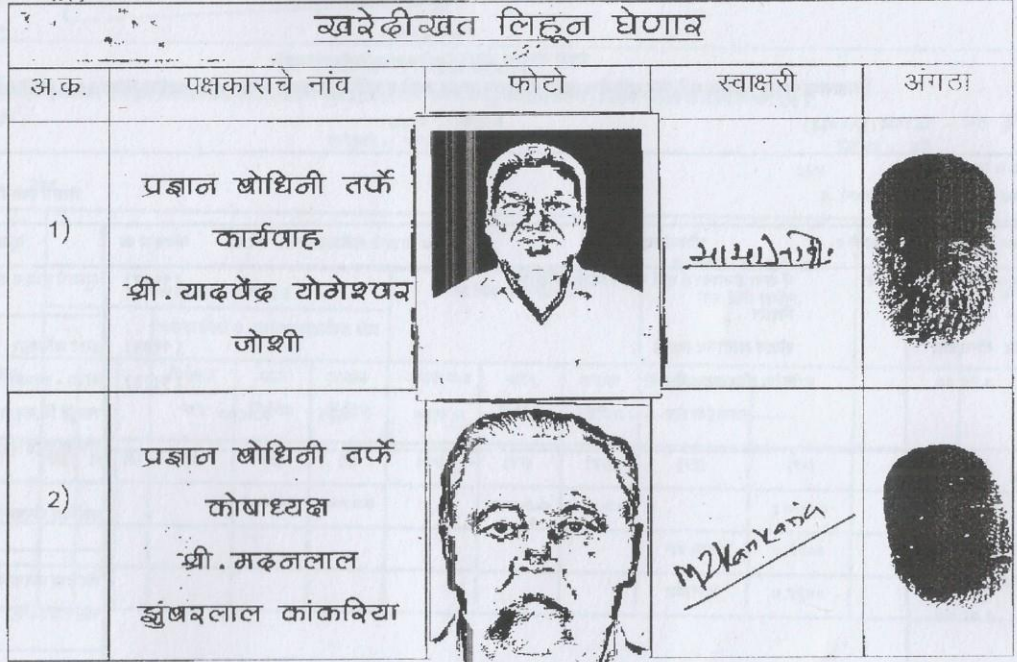 खरेदीखत लिहून घेणार
अ.क. पक्षकाराचे नांव फोटो स्वाक्षरी अंगठा
1)
प्रज्ञान बोधिनी तर्फे
कार्यवाह
श्री. यादवेंद्र योगेश्वर
जोशी
2)
प्रज्ञान बोधिनी तर्फे
कोषाध्यक्ष
श्री. मदनलाल
झुंबरलाल कांकरिया